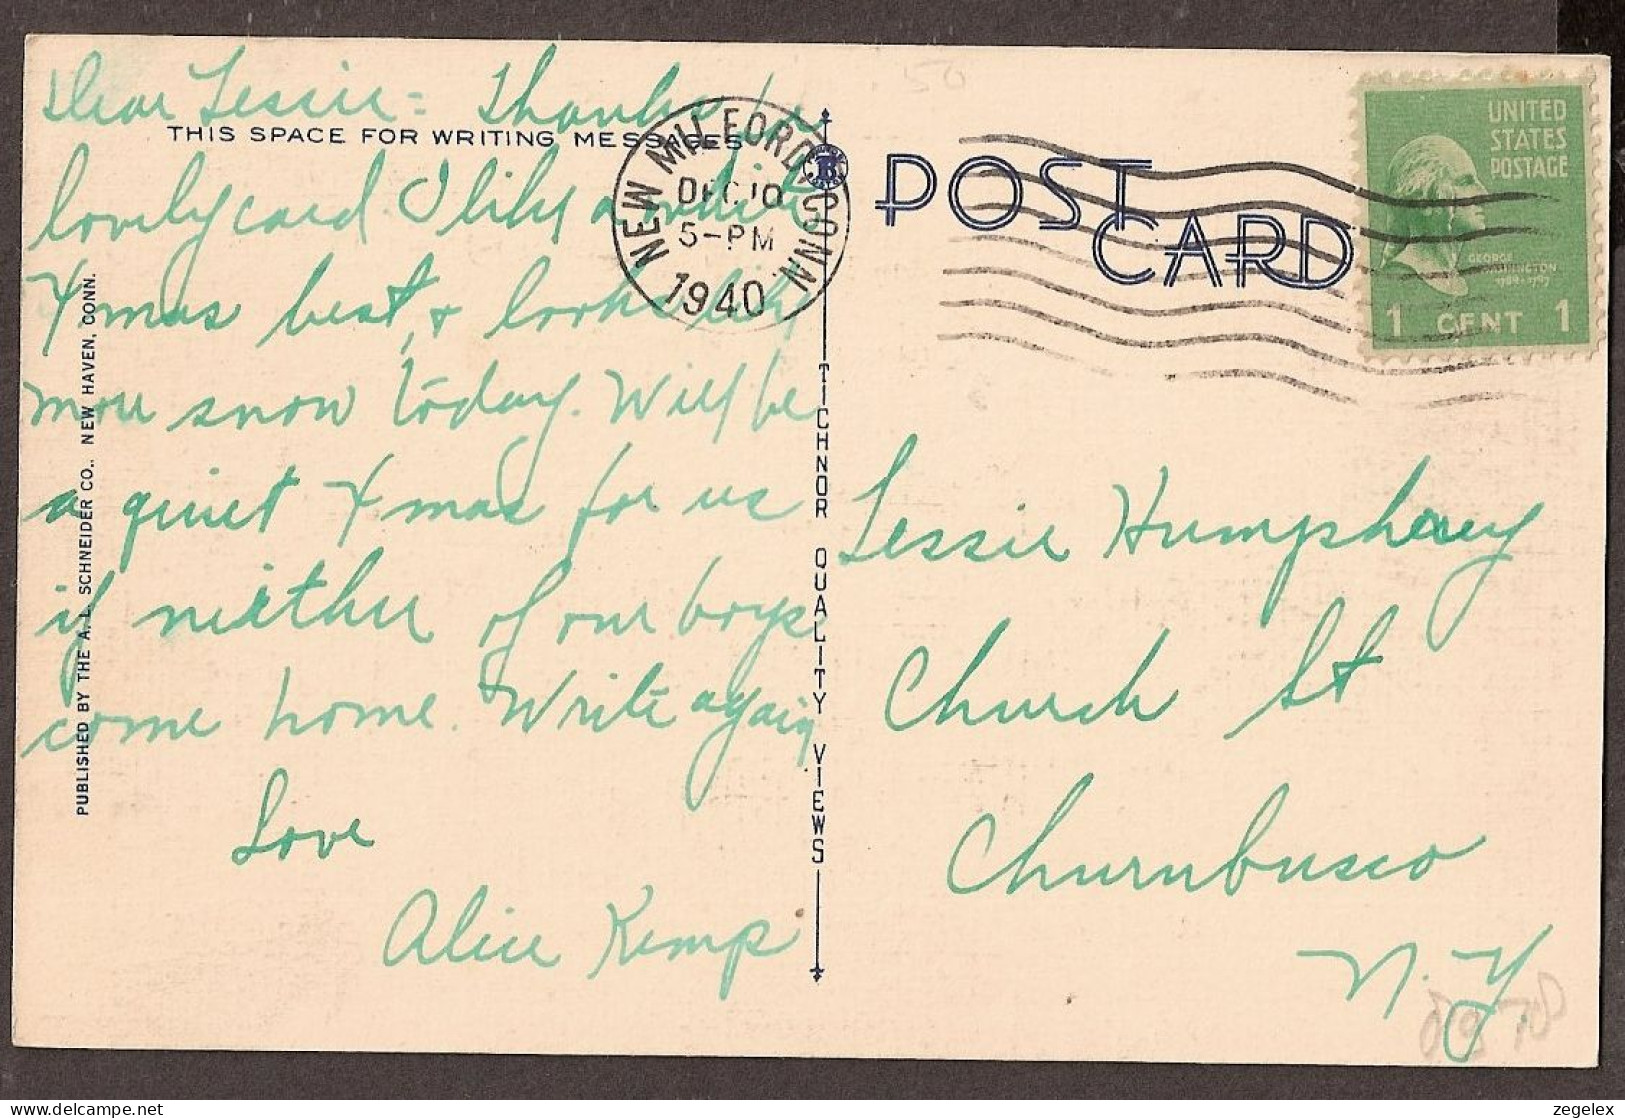 Dear Lessie = Thanks for
THIS SPACE FOR WRITING MESSAGES
lovely card. I like a white
Xmas best, & looks like
more snow today. Will be
a quiet Xmas for us
if neither of our boys
come home. Write again
Love
Alice Kemp
PUBLISHED BY THE A. L. SCHNEIDER CO., NEW HAVEN, CONN.
NEW MILFORD, CONN
DEC 10
5-PM
1940
TICHNOR QUALITY VIEWS
POST
CARD
UNITED
STATES
POSTAGE
GEORGE
WASHINGTON
1789-1797
1 CENT 1
Lessie Humphrey
Church St
Churubusco
N.Y
zegelex